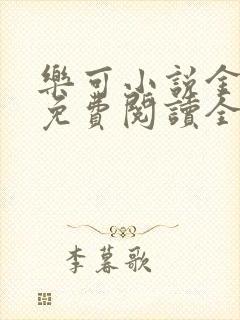 樂可小說全
免費閱讀全
李暮歌